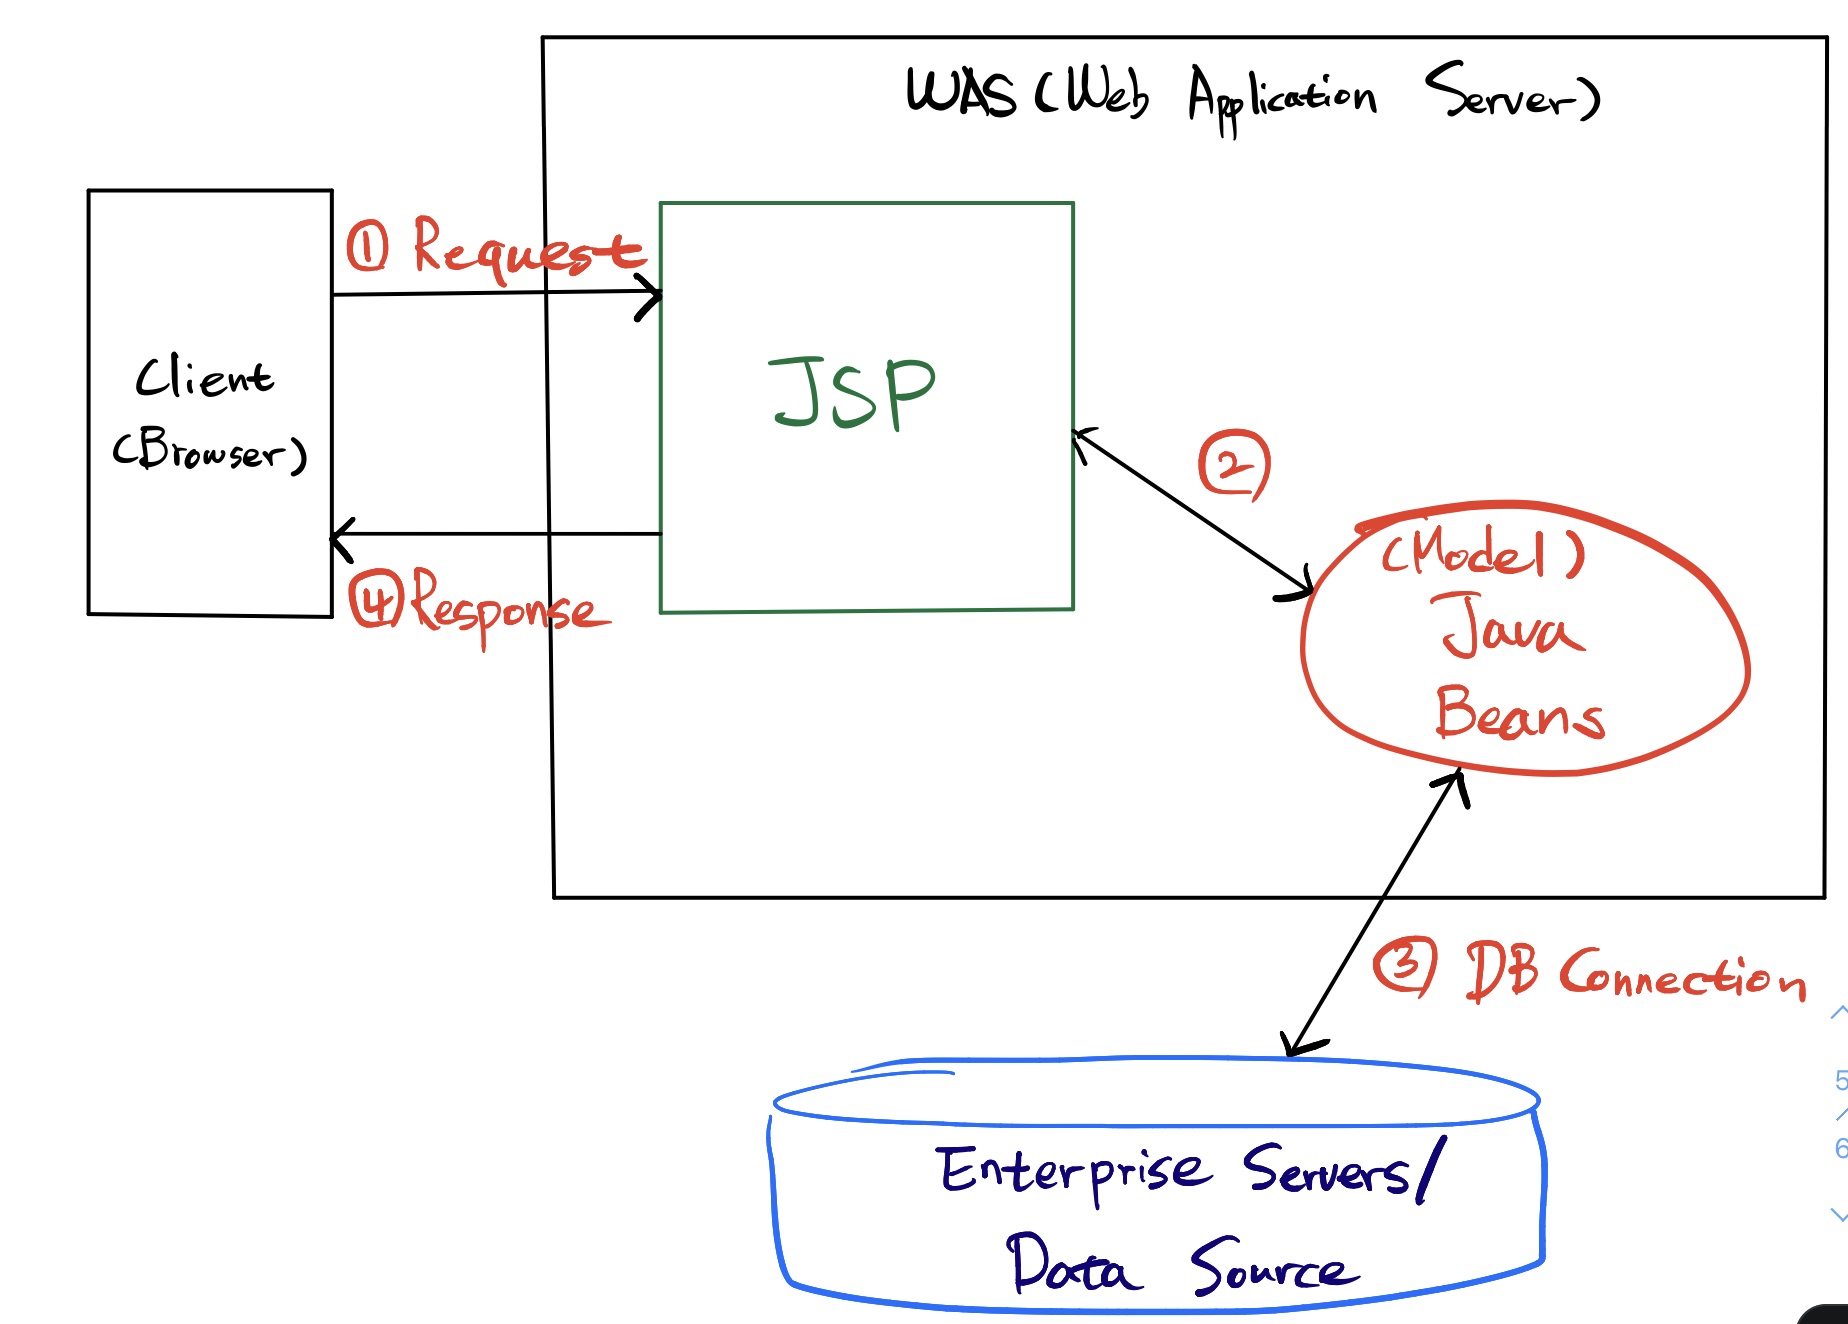 WAS (Web Application Server)
① Request
Client
(Browser)
JSP
②
④ Response
(Model)
Java
Beans
③ DB Connection
Enterprise Servers/
Data Source
5
/
6